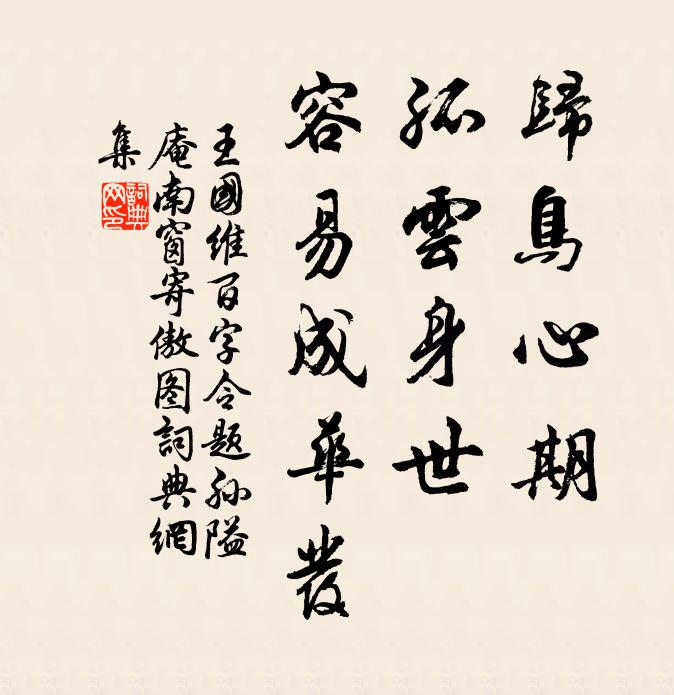 歸鳥心期
孤雲身世
容易成華發
王國維百字令題孫隘
庵南窗寄傲图詞典網
集
詞典
网印